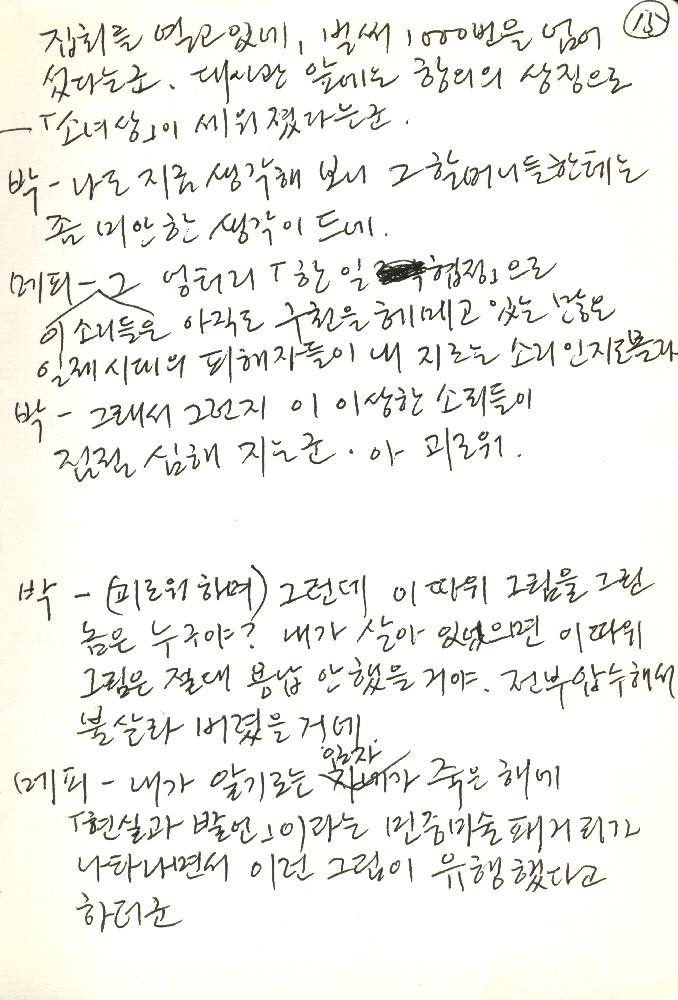 ⑮
집회를 열고 있네, 벌써 1000번을 넘어
섰다는군. 대사관 앞에는 항의의 상징으로
「소녀상」이 세워졌다는군.
박 - 나도 지금 생각해 보니 그 할머니들한테는
좀 미안한 생각이 드네.
메피 - 그 엉터리 「한일 협정」으로
이 소리들은 아직도 구천을 헤메고 있는 많은
일제시대의 피해자들이 내 지르는 소리인지도 몰라
박 - 그래서 그런지 이 이상한 소리들이
점점 심해 지는군. 아 괴로워.
박 - (괴로워 하며) 그런데 이 따위 그림을 그린
놈은 누구야? 내가 살아 있었으면 이 따위
그림은 절대 용납 안 했을 거야. 전부 압수해서
불살라 버렸을 거네
임자
메피 - 내가 알기로는 가 죽은 해에
「현실과 발언」이라는 민중미술 패거리가
나타나면서 이런 그림이 유행했다고
하더군